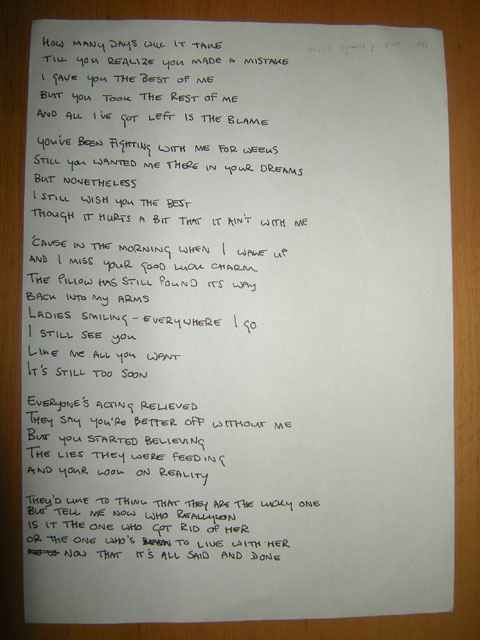 HOW MANY DAYS WILL IT TAKE
TILL YOU REALIZE YOU MADE A MISTAKE
I GAVE YOU THE BEST OF ME
BUT YOU TOOK THE REST OF ME
AND ALL I'VE GOT LEFT IS THE BLAME
YOU'VE BEEN FIGHTING WITH ME FOR WEEKS
STILL YOU WANTED ME THERE IN YOUR DREAMS
BUT NONETHELESS
I STILL WISH YOU THE BEST
THOUGH IT HURTS A BIT THAT IT AIN'T WITH ME
'CAUSE IN THE MORNING WHEN I WAKE UP
AND I MISS YOUR GOOD LUCK CHARM
THE PILLOW HAS STILL FOUND ITS WAY
BACK INTO MY ARMS
LADIES SMILING - EVERYWHERE I GO
I STILL SEE YOU
LIKE ME ALL YOU WANT
IT'S STILL TOO SOON
EVERYONE'S ACTING RELIEVED
THEY SAY YOU'RE BETTER OFF WITHOUT ME
BUT YOU STARTED BELIEVING
THE LIES THEY WERE FEEDING
AND YOUR LOOK ON REALITY
THEY'D LIKE TO THINK THAT THEY ARE THE LUCKY ONE
BUT TELL ME NOW WHO REALLY WON
IS IT THE ONE WHO GOT RID OF HER
OR THE ONE WHO'S TO LIVE WITH HER
NOW THAT IT'S ALL SAID AND DONE